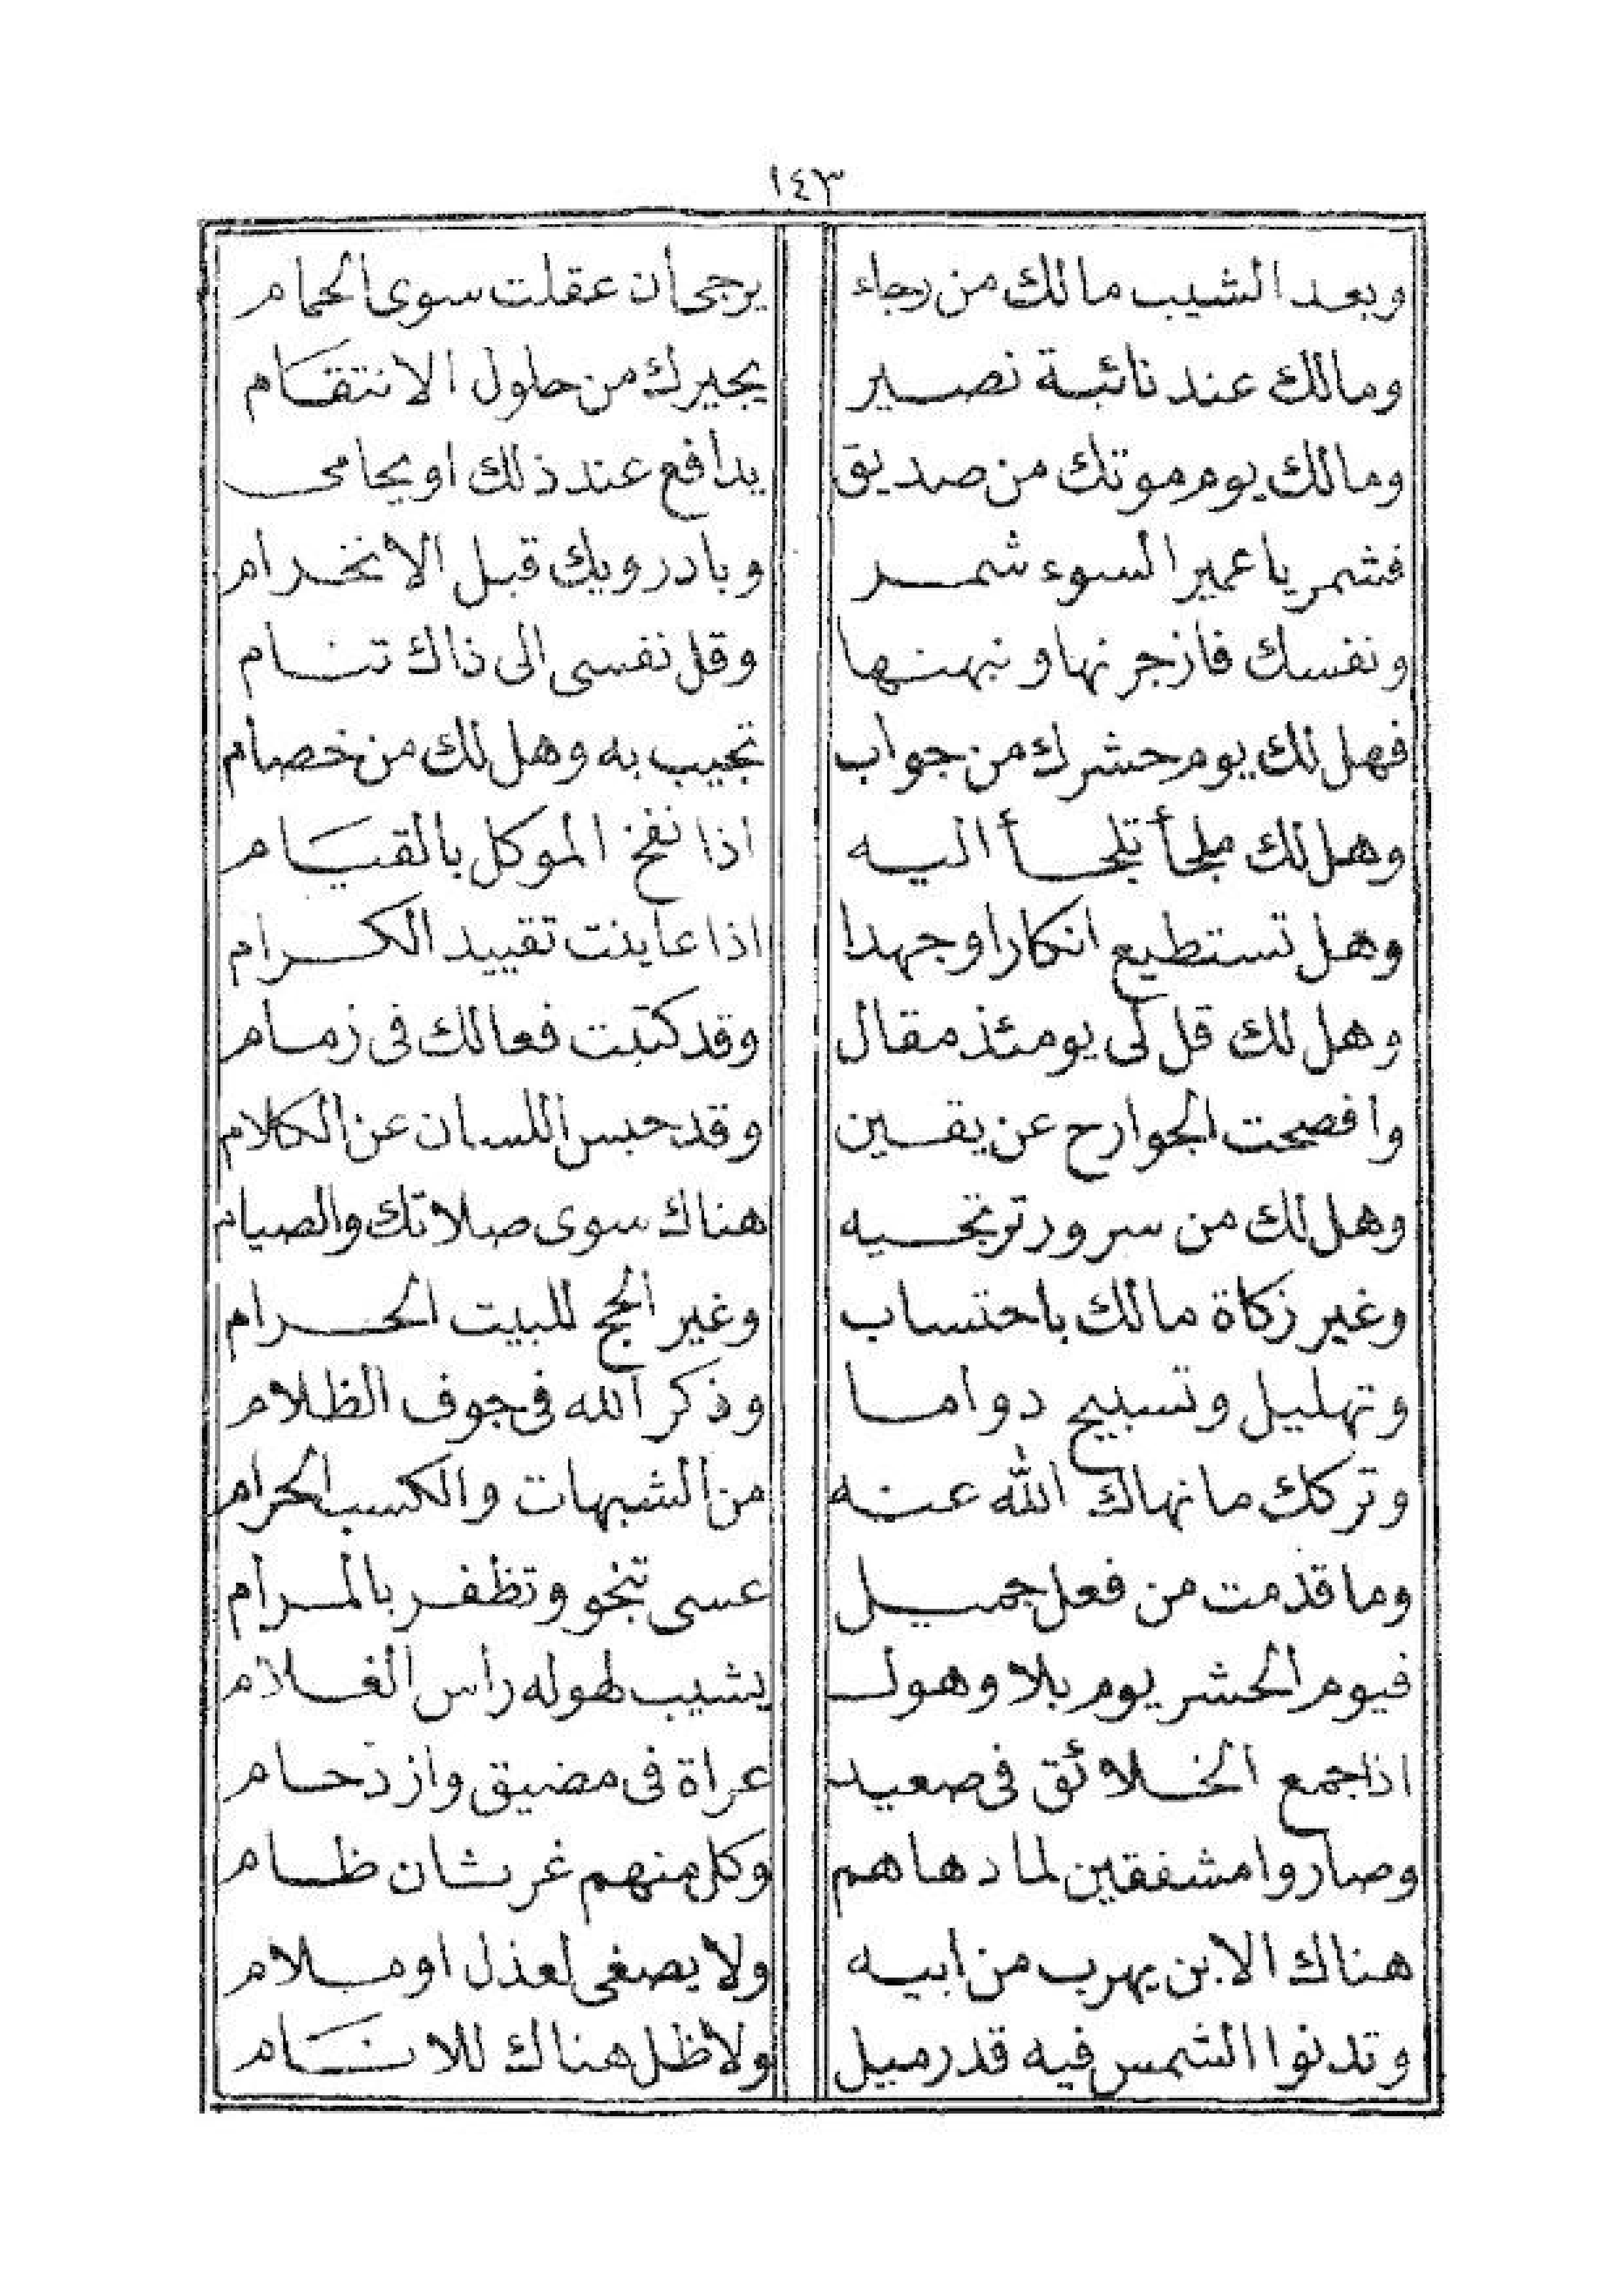 ١٤٣
وبعد الشيب مالك من رجاء يرجى ان عقلت سوى الحمام
ومالك عند نائبة نصير يجيرك من حلول الانتقام
ومالك يوم موتك من صديق يدافع عند ذلك او يحامى
فشمر يا عمير السوء شمر وبادر ويك قبل الانخرام
ونفسك فازجرنها ونبهنها وقل نفسى الى ذاك تنام
فهل لك يوم حشرك من جواب تجيب به وهل لك من خصام
وهل لك ملجأ تلجأ اليه اذا نفخ الموكل بالقيام
وهل تستطيع انكارا وجهدا اذا عاينت تقييد الكرام
وهل لك قل لى يومئذ مقال وقد كتبت فعالك فى زمام
وافصحت الجوارح عن يقين وقد حبس اللسان عن الكلام
وهل لك من سرور ترتجيه هناك سوى صلاتك والصيام
وغير زكاة مالك باحتساب وغير الحج للبيت الحرام
وتهليل وتسبيح دواما وذكر الله فى جوف الظلام
وتركك ما نهاك الله عنه من الشبهات والكسب الحرام
وما قدمت من فعل جميل عسى تنجو وتظفر بالمرام
فيوم الحشر يوم بلا وهول يشيب لهوله رأس الغلام
اذا جمع الخلائق فى صعيد عراة فى مضيق وازدحام
وصاروا مشفقين لما دهاهم وكل منهم غرثان ظام
هناك الابن يهرب من ابيه ولا يصغى لعذل او ملام
وتدنوا الشمس فيه قدر ميل ولا ظل هناك للانام